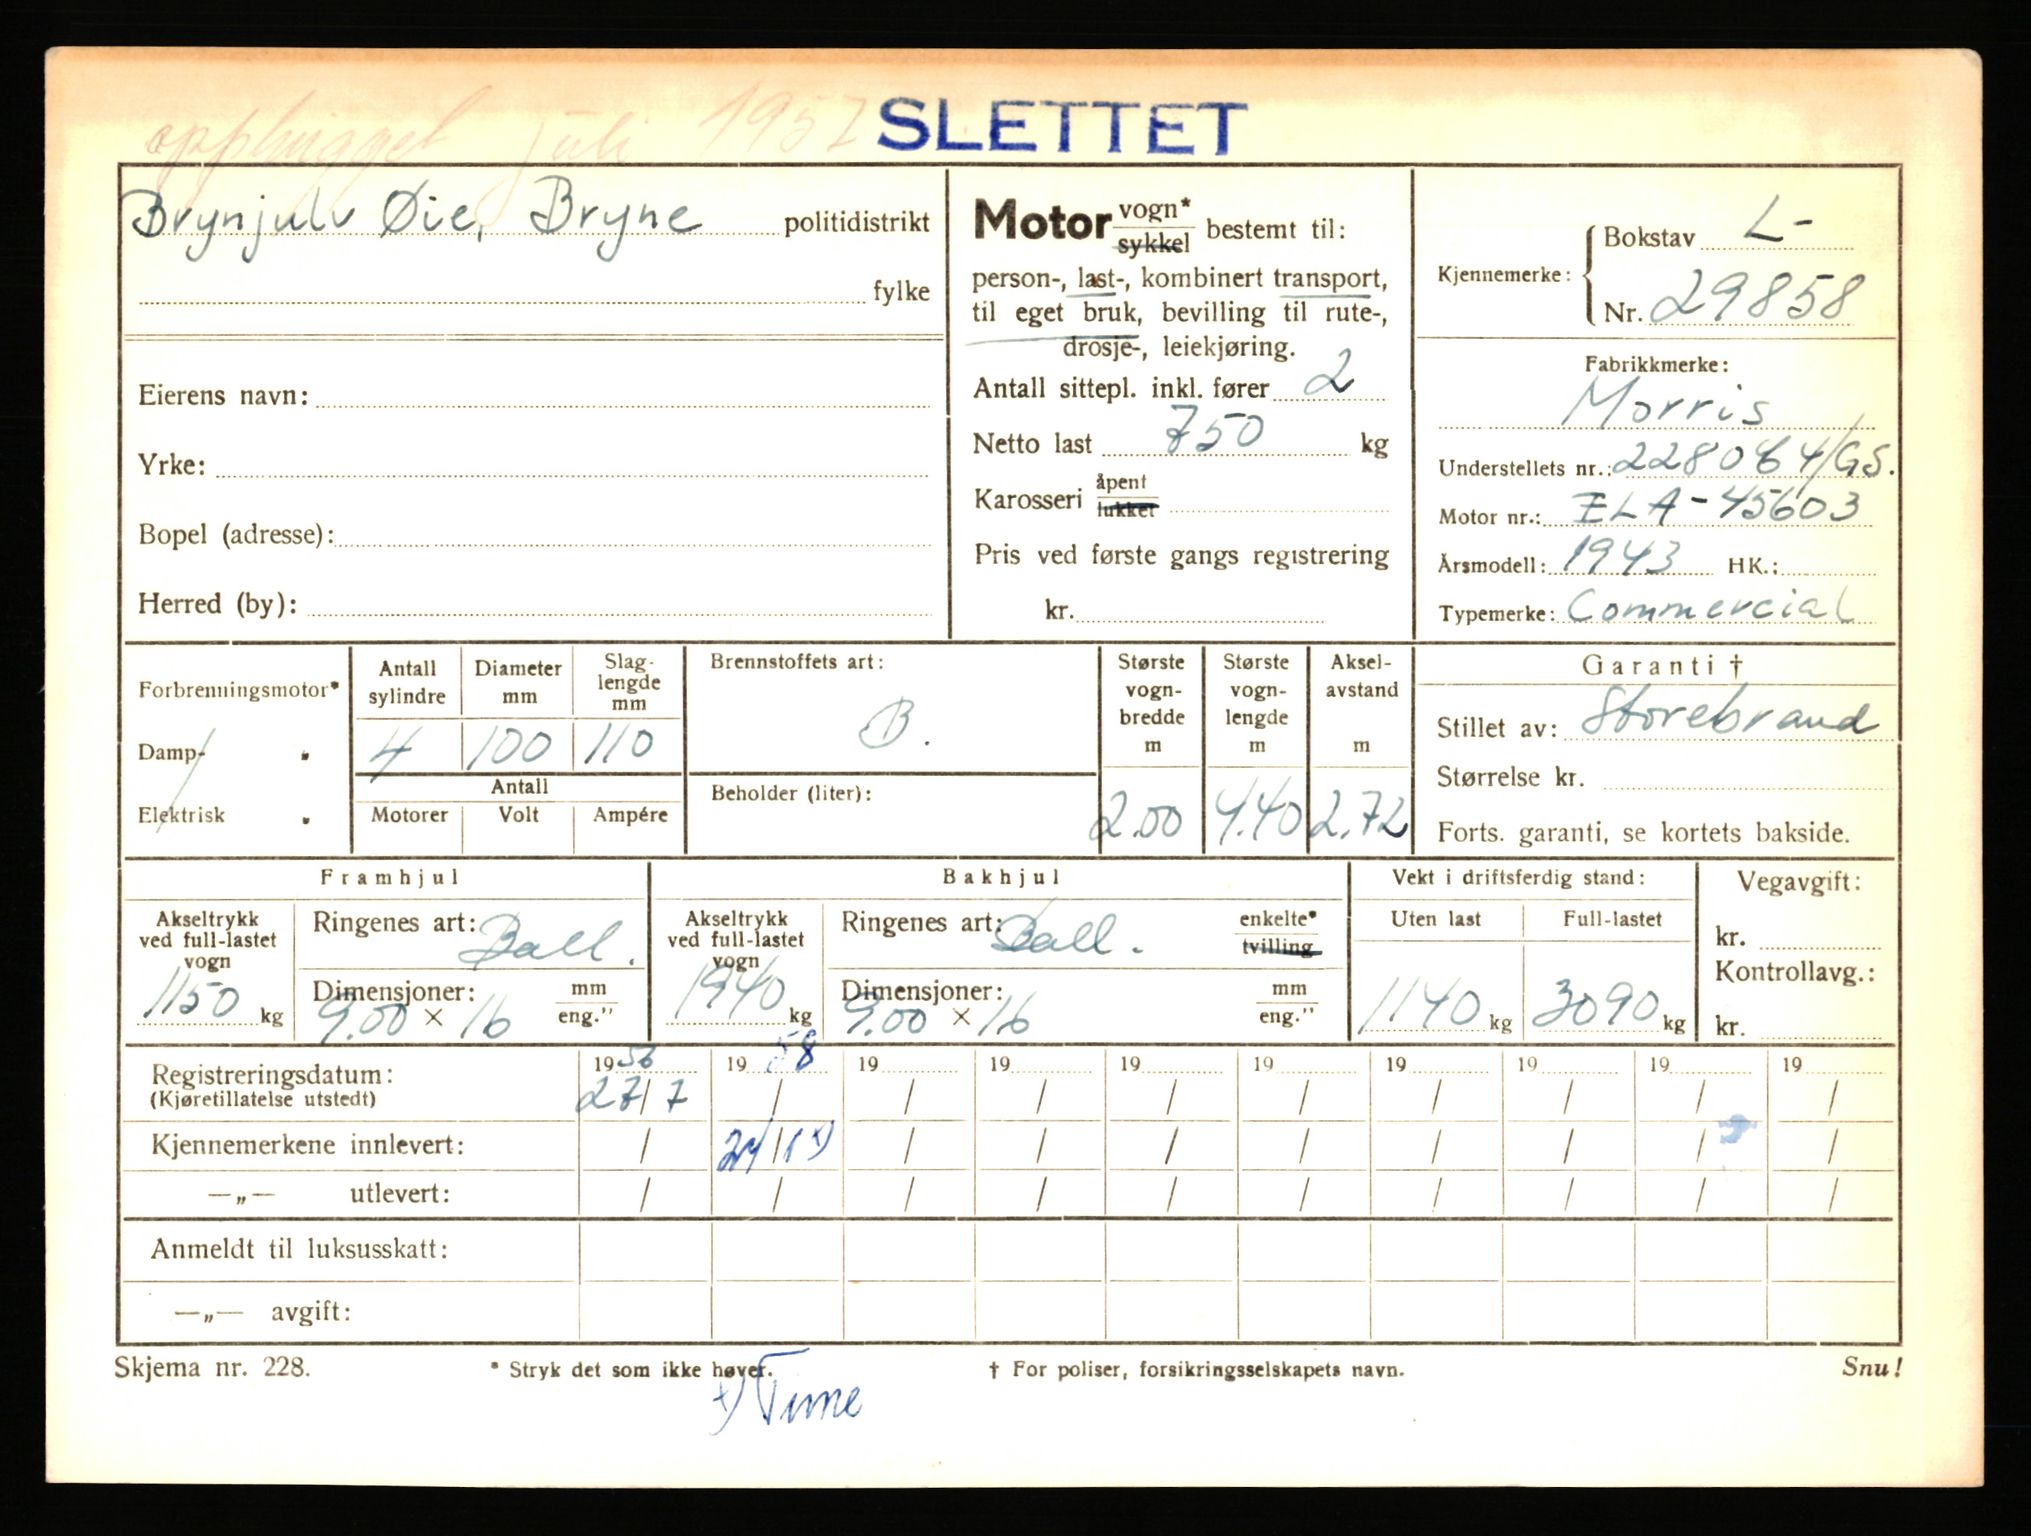 opphugget juli 1957 SLETTET
Brynjulv Øie, Bryne politidistrikt
fylke
Eierens navn:
Yrke:
Bopel (adresse):
Herred (by):
Motor vogn* sykkel bestemt til:
person-, last-, kombinert transport,
til eget bruk, bevilling til rute-,
drosje-, leiekjøring.
Antall sittepl. inkl. fører 2
Netto last 750 kg
Karosseri åpent lukket
Pris ved første gangs registrering
kr.
Kjennemerke: Bokstav L-
Nr. 29858
Fabrikkmerke:
Morris
Understellets nr.: 228064/GS.
Motor nr.: ELA-45603
Årsmodell: 1943 HK.:
Typemerke: Commercial
Forbrenningsmotor*
Damp- "
Elektrisk "
Antall sylindre Diameter mm Slaglengde mm
4 100 110
Antall
Motorer Volt Ampére
Brennstoffets art:
B.
Beholder (liter):
Største vogn-bredde m Største vogn-lengde m Aksel-avstand m
2.00 4.40 2.72
Garanti †
Stillet av: Storebrand
Størrelse kr.
Forts. garanti, se kortets bakside.
Framhjul
Akseltrykk ved full-lastet vogn
1150 kg
Ringenes art: Ball.
Dimensjoner: mm
9.00 × 16 eng."
Bakhjul
Akseltrykk ved full-lastet vogn
1940 kg
Ringenes art: Ball. enkelte* tvilling
Dimensjoner: mm
9.00 × 16 eng."
Vekt i driftsferdig stand:
Uten last Full-lastet
1140 kg 3090 kg
Vegavgift:
kr.
Kontrollavg.:
kr.
Registreringsdatum: 1956 1958 19 19 19 19 19 19 19 19
(Kjøretillatelse utstedt) 27/7 / / / / / / / / /
Kjennemerkene innlevert: / 24/1 x) / / / / / / / /
—„— utlevert: / / / / / / / / / /
Anmeldt til luksusskatt:
—„— avgift:
Skjema nr. 228. * Stryk det som ikke høver. † For poliser, forsikringsselskapets navn. Snu!
x) Time